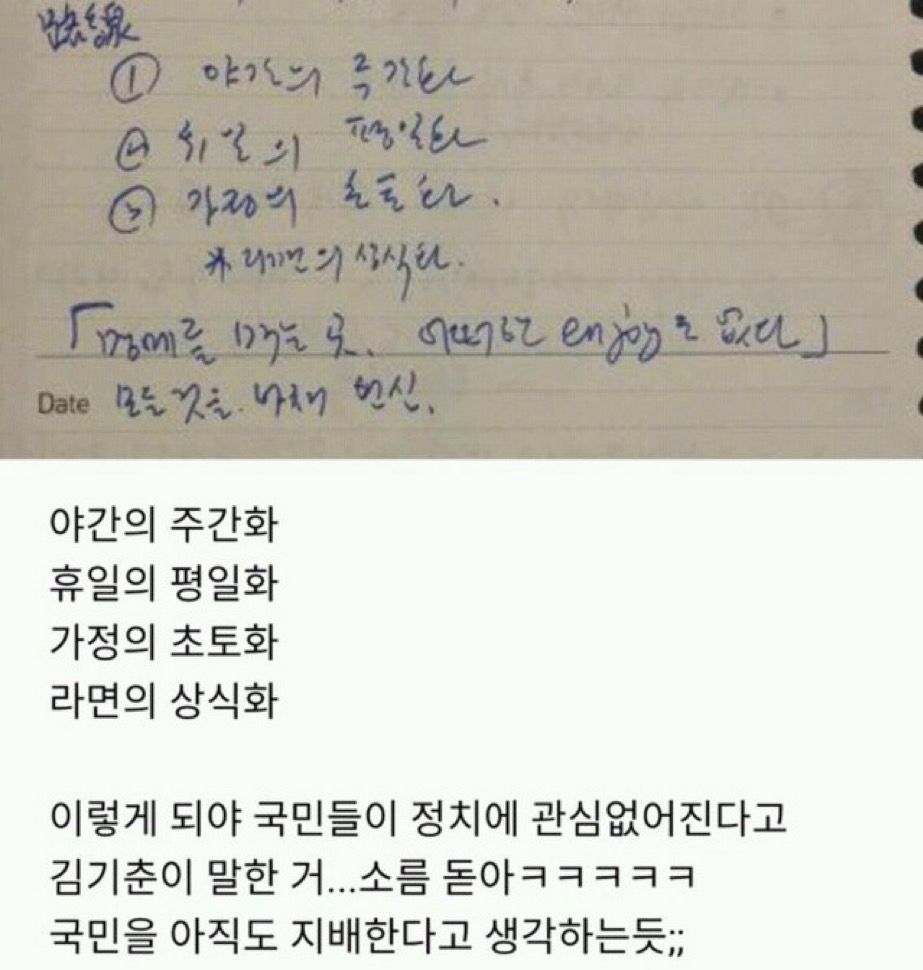 路線
① 야간의 주간화
② 휴일의 평일화
③ 가정의 초토화.
※ 라면의 상식화.
「명예를 먹는 곳. 어떠한 영도 없다」
Date 모든 것을 바쳐 헌신.
야간의 주간화
휴일의 평일화
가정의 초토화
라면의 상식화
이렇게 되야 국민들이 정치에 관심없어진다고
김기춘이 말한 거...소름 돋아ㅋㅋㅋㅋㅋ
국민을 아직도 지배한다고 생각하는듯;;